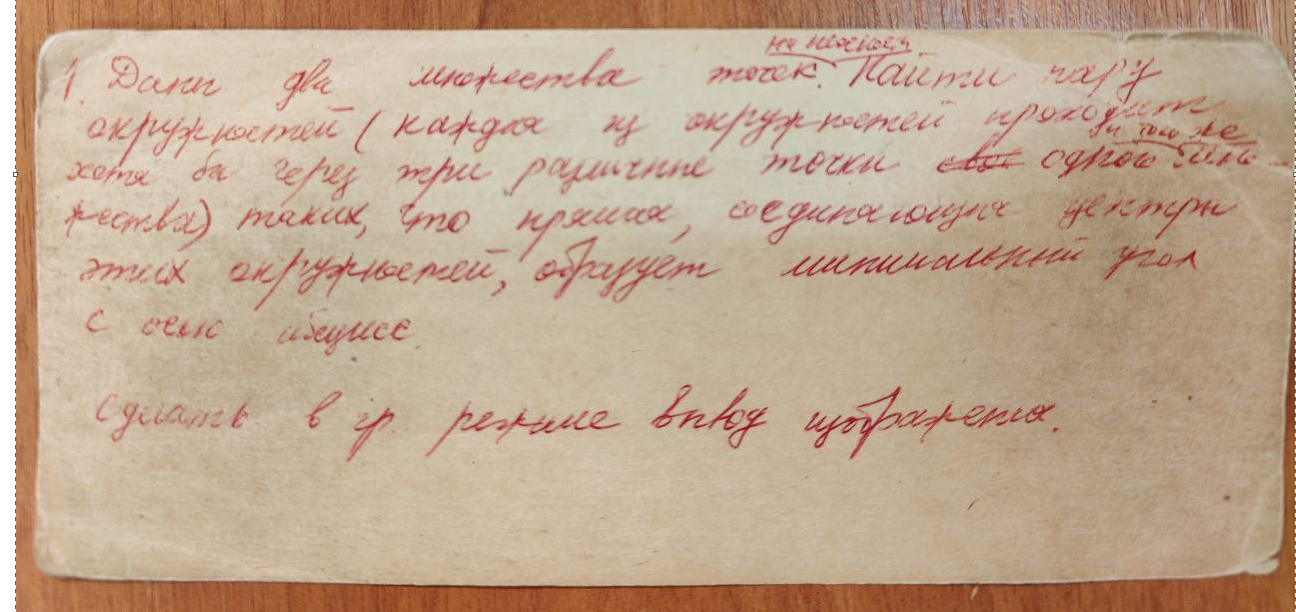 на плоскости
1. Даны два множества точек. Найти пару
окружностей (каждая из окружностей проходит
и того же
хотя бы через три различные точки одного мно-
жества) таких, что прямая, соединяющая центры
этих окружностей, образует минимальный угол
с осью абцисс
Сделать в гр. режиме вывод изображения.